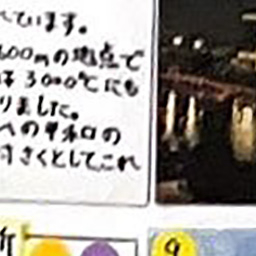 れています。
00mの地点で
は3000℃にも
りました。
への
対さくとしてこれ
介
9